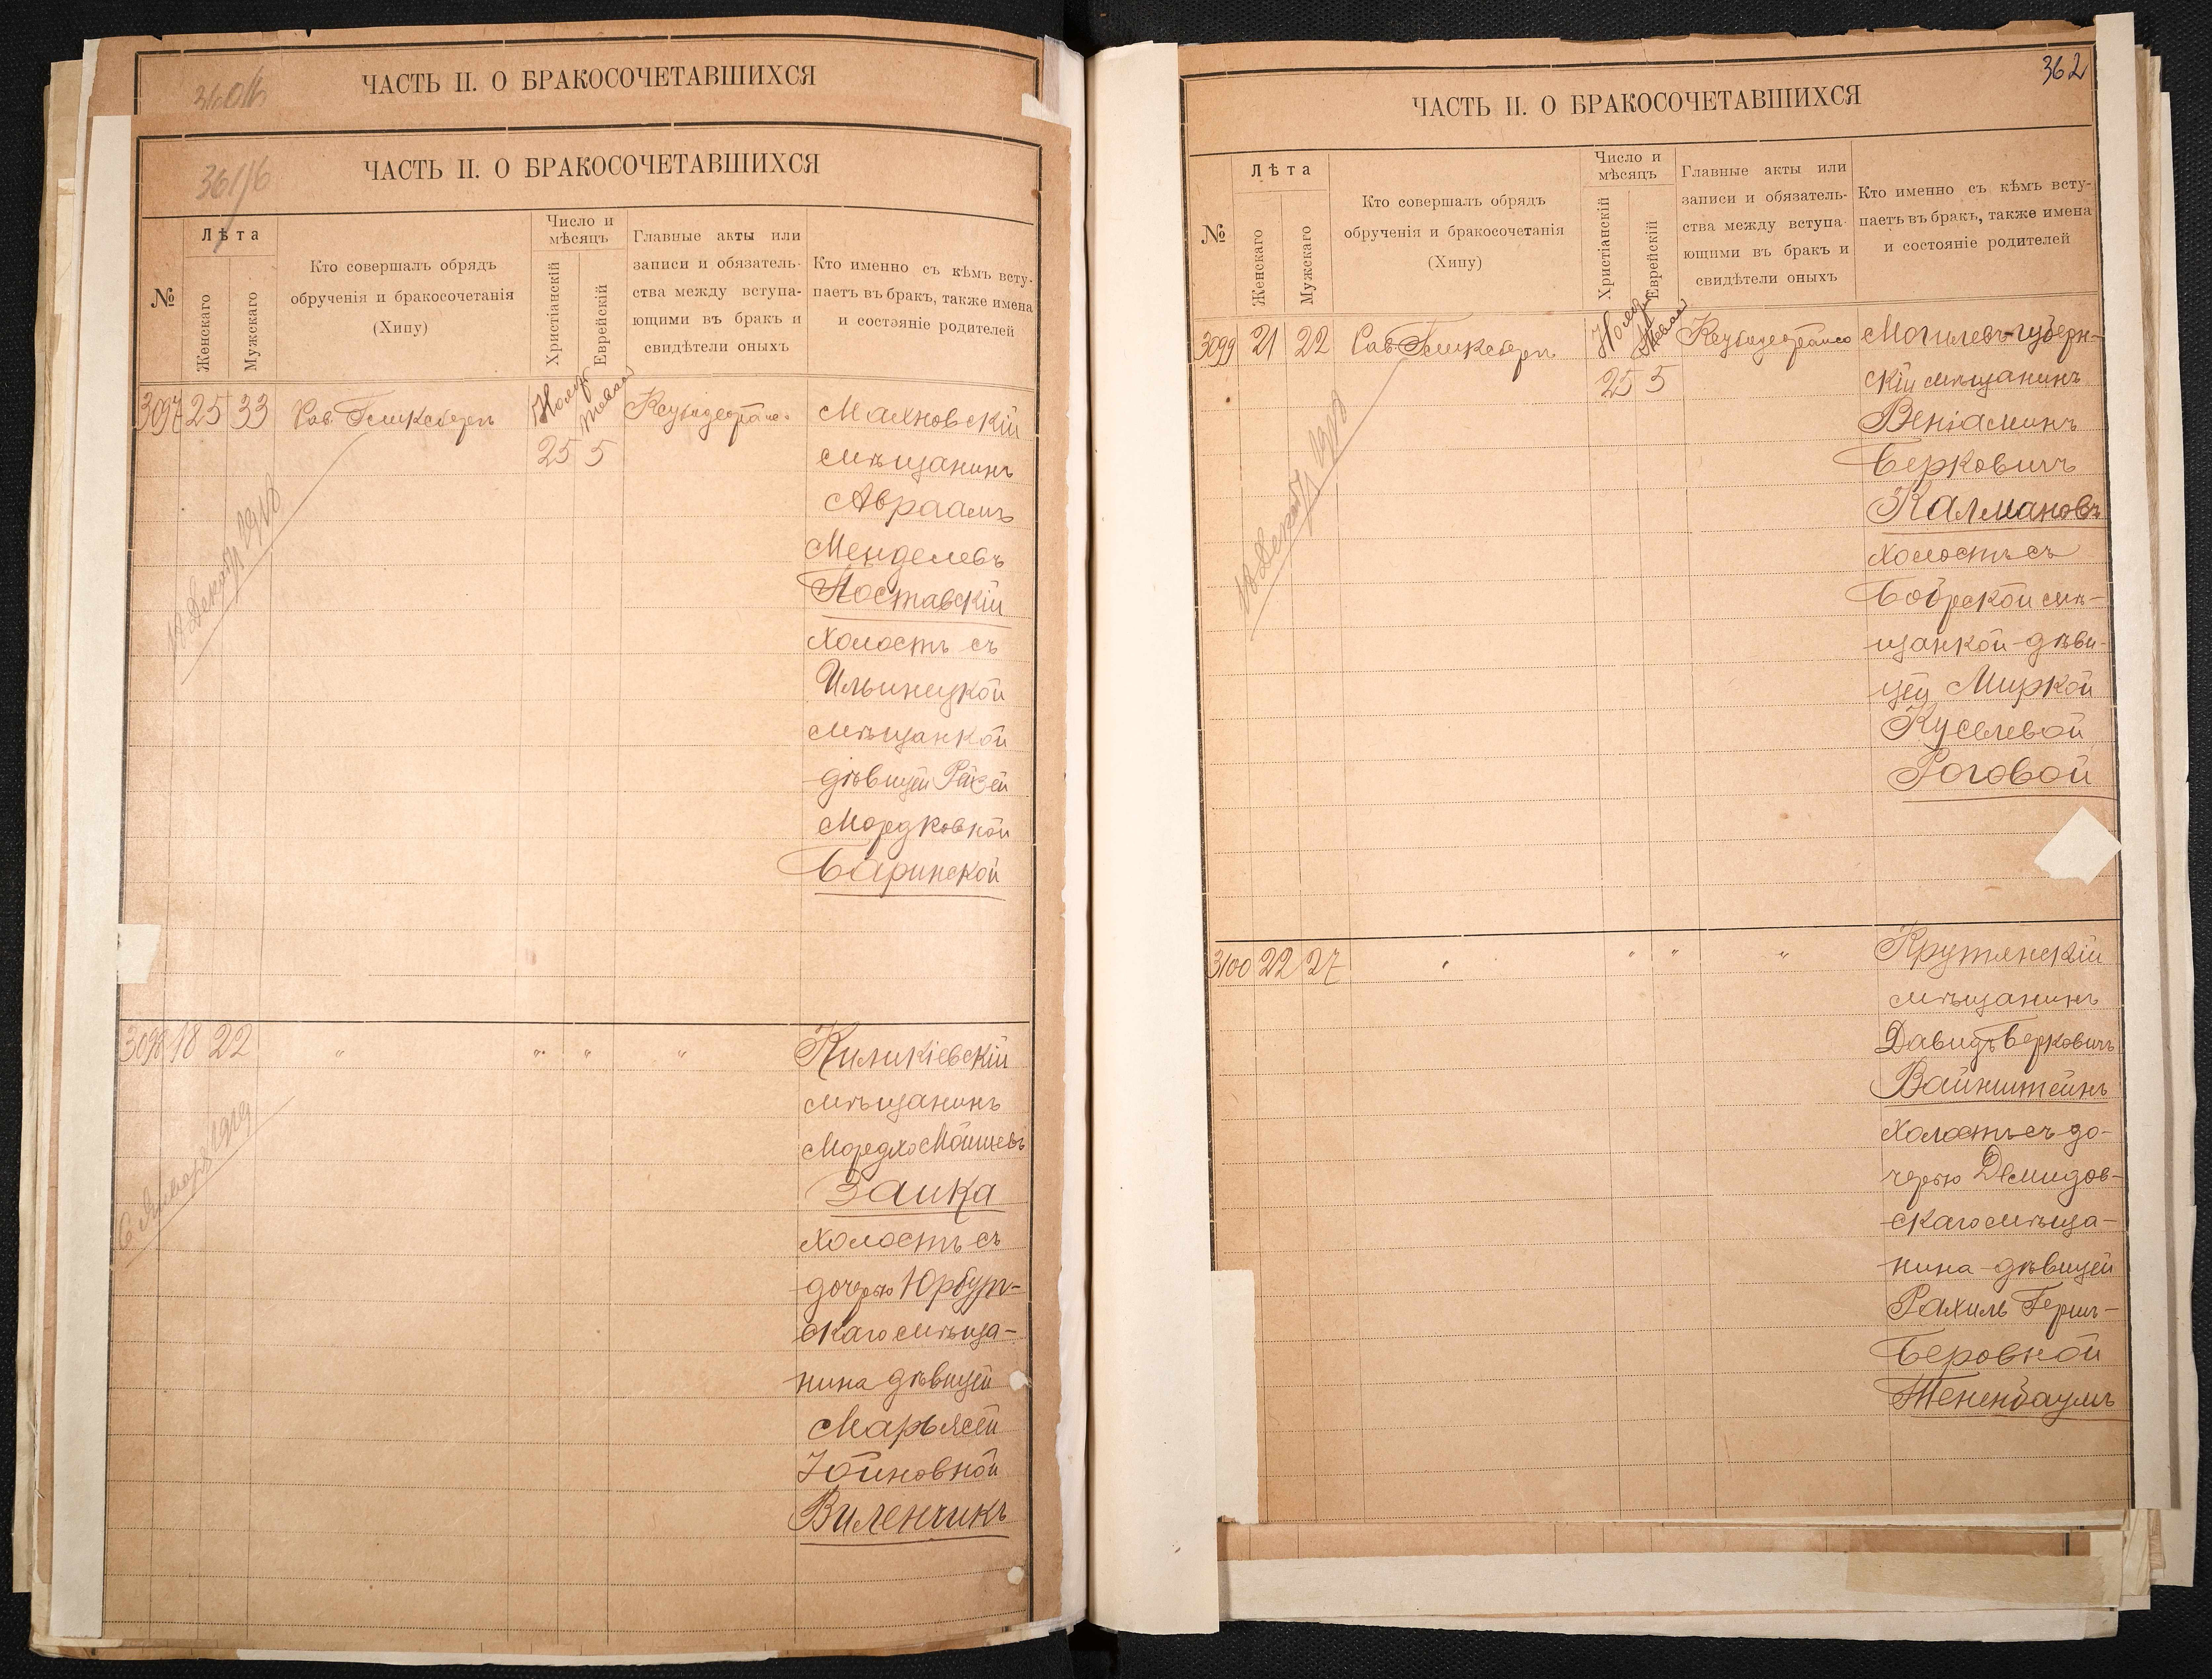 ЧАСТЬ II. О БРАКОСОЧЕТАВШИХСЯ
ЧАСТЬ II. О БРАКОСОЧЕТАВШИХСЯ
№
Лѣта
Женскаго
Мужскаго
Кто совершалъ обрядъ
обрученія и бракосочетанія
(Хипу)
Число и
мѣсяцъ
Христіанскій
Еврейскій
Главные акты или
записи и обязатель-
ства между вступа-
ющими въ бракъ и
свидѣтели оныхъ
Кто именно съ кѣмъ всту-
паетъ въ бракъ, также имена
и состояніе родителей
3097 25 33
25 5
Махновскій
мѣщанинъ
Авраамъ
Менделевъ
Поставскій
холостъ съ
Ильинецкой
мѣщанкой
дѣвицей Рейзей
Мордковной
Баринской
18 Декабр 1918
3098 18 22 " " " "
Киликіевскій
мѣщанинъ
Мордко Мошевъ
Заика
холостъ съ
дочерью Юрбург-
скаго мѣща-
нина дѣвицей
Марьясей
Іойновной
Виленчикъ
6 Января 1919
362
ЧАСТЬ II. О БРАКОСОЧЕТАВШИХСЯ
№
Лѣта
Женскаго
Мужскаго
Кто совершалъ обрядъ
обрученія и бракосочетанія
(Хипу)
Число и
мѣсяцъ
Христіанскій
Еврейскій
Главные акты или
записи и обязатель-
ства между вступа-
ющими въ бракъ и
свидѣтели оныхъ
Кто именно съ кѣмъ всту-
паетъ въ бракъ, также имена
и состояніе родителей
3099 21 22
25 5
Могилевъ-губерн-
скій мѣщанинъ
Веніаминъ
Берковичъ
Калмановъ
холостъ съ
Боярской мѣ-
щанкой-дѣви-
цей Миркой
Кусѣлевой
Роговой
18 Декабр 1918
3100 22 27 " " " "
Крутянскій
мѣщанинъ
Давидъ Берковичъ
Вайнштейнъ
холостъ съ до-
черью Демидов-
скаго мѣща-
нина-дѣвицей
Рахиль Герш-
Беровной
Тененбаумъ